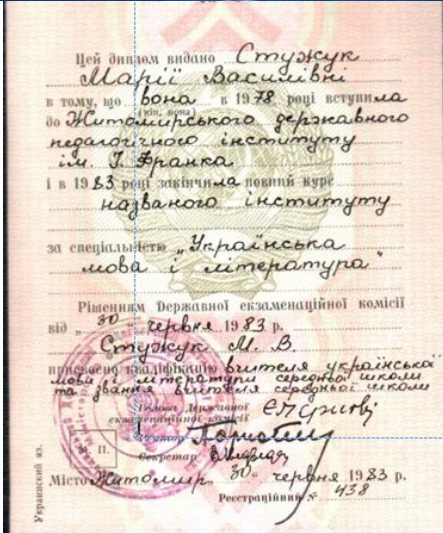 Цей диплом видано Стужук
Марії Василівні
в тому, що вона в 1978 році вступила
(він, вона)
до Житомирського державного
педагогічного інституту
ім. І. Франка
і в 1983 році закінчила повний курс
названого інституту
за спеціальністю „Українська
мова і література“
Рішенням Державної екзаменаційної комісії
від „30“ червня 1983 р.
Стужук М. В.
присвоєно кваліфікацію вчителя української
мови і літератури середньої школи
та звання вчителя середньої школи
Голова Державної
екзаменаційної комісії
Ректор
Секретар
М. П.
Місто Житомир „30“ червня 1983 р.
Реєстраційний № 438
Украинский яз.